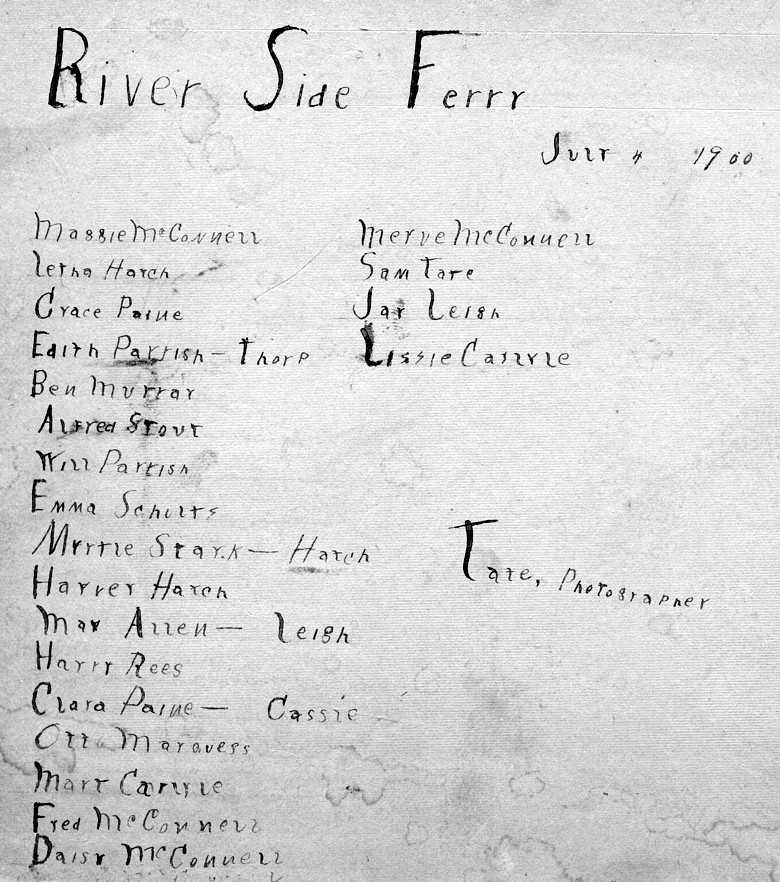 River Side Ferry
July 4 1900
Massie McConnell
Letha Hatch
Grace Paine
Edith Parrish - Thorp
Ben Murray
Alfred Stout
Will Parrish
Emma Schults
Myrtle Stark — Hatch
Harvey Hatch
May Allen — Leigh
Harry Rees
Clara Paine — Cassie
Otto Marquess
Carlyle
Fred McConnell
Daisy McConnell
Merve McConnell
Sam Tate
Jay Leigh
Lissie Carlyle
Tate, Photographer